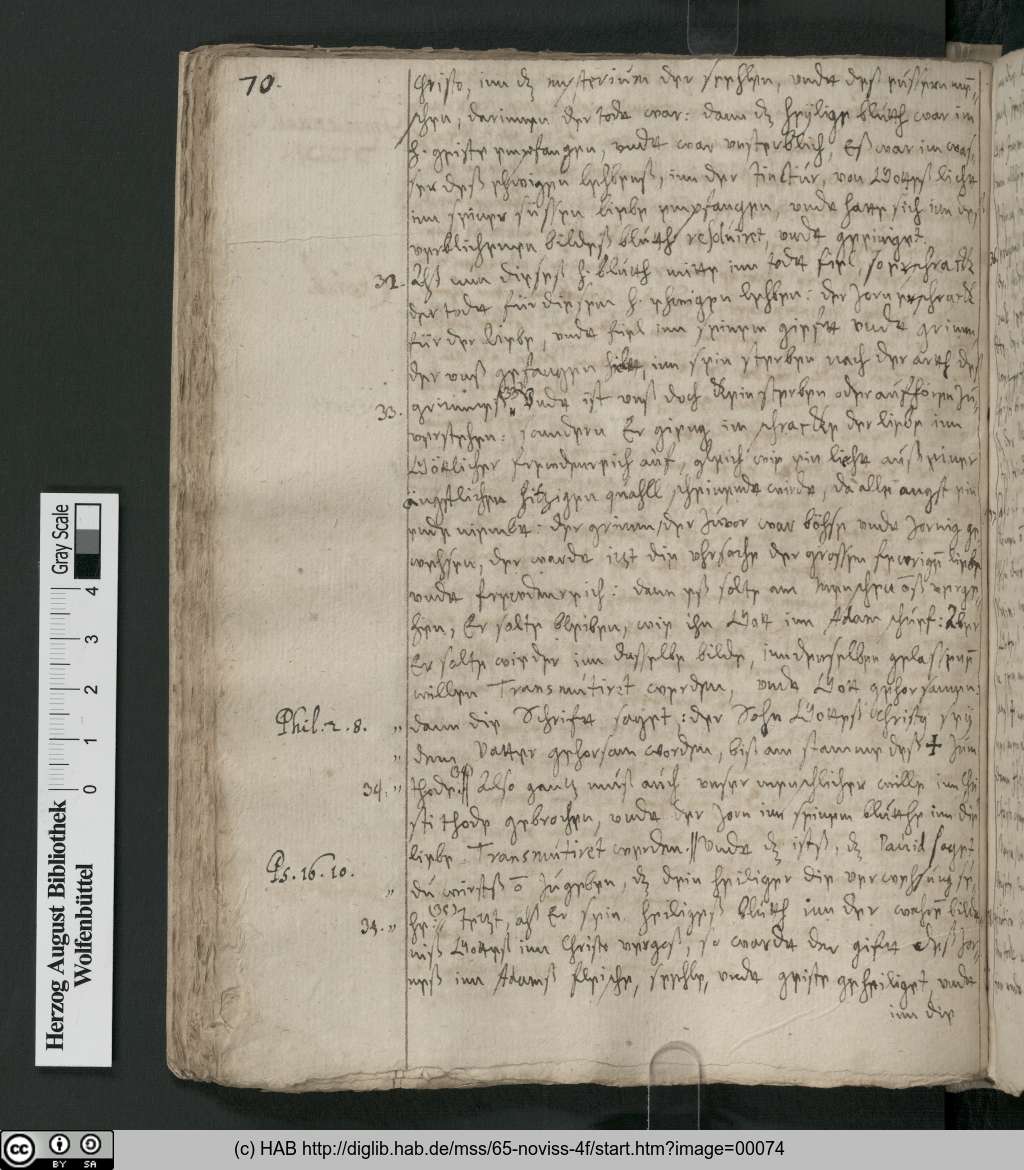 70.
Christo, inn dz mysterium der seehlen, undt deß eusern men=
schen, darinnen der todt war: dann dz heylige bluth war im
h. geiste empfangen, undt war unsterblich, Eß war im was=
ser deß ehwigen lehbenß, inn der Tinctur, von Gotteß licht
inn seiner süssen liebe empfangen, undt hatte sich inn deß
verblichenen bildeß bluth resolviret, undt geeiniget.
32. Alß nun dieseß h. bluth mitte inn todt fiel, so erschrack
der todt für diesem h. ehwigen lehben: der Zorn erschrack
für der liebe, undt fiel inn seinem gift undt grimm
der unß gefangen hielt, inn sein sterben nach der arth deß
33. grimmeß. (33) Undt ist unß doch kein sterben oder aufhören zu=
verstehen: sondern Er gieng im schracke der liebe inn
Götlicher frewdenreich auf, gleich wie ein licht auß einer
ängstlichen hitzigen quahll scheinende wirdt, da alle angst ein
ende nimbt: der grimm, der zuvor war böhse undt zornig ge=
wehsen, der wardt itzt die uhrsache der grossen fewrigen liebe
undt frewdenreich: dann eß solte am menschen õß verge=
hen, Er solte bleiben, wie ihn Gott inn Adam schuef: Aber
Er solte wieder inn dasselbe bilde, inn denselben gelassenen
willen Transmutiret werden, undt Gott gehorsamen:
Phil. 2. 8. „ dann die Schrift saget: der Sohn Gotteß Christus sey
„ dem Vatter gehorsam worden, biß am stamme deß + zum
34. „ thode. (34) Also gantz muß auch unser menschlicher wille im Chri
sti thode gebrochen, undt der Zorn inn seinem bluthe inn die
liebe Transmutiret werden. Undt dz istß, dz David saget
Ps. 16. 10. du wirstß õ zugeben, dz dein heiliger die verwehsung se=
„
35. „ he: (35) Jetzt, alß Er sein heiligeß bluth inn der wahren bildt=
niß Gotteß inn Christo vergoß, so wardt der gift deß Zor=
neß inn Adamß fleische, seehle, undt geiste geheiliget, undt
inn die
Herzog August Bibliothek
Wolfenbüttel
0 1 2 3 4
Gray Scale
cc BY SA
(c) HAB http://diglib.hab.de/mss/65-noviss-4f/start.htm?image=00074